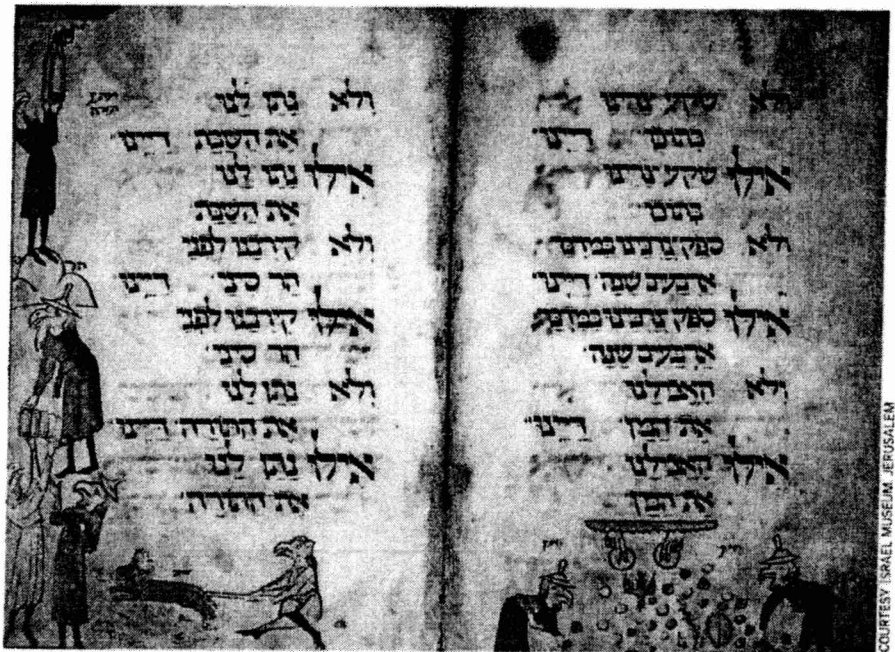 ולא שקע צרינו
בתוכו דיינו
אילו שקע צרינו
בתוכו
ולא ספק צרכינו במדבר
ארבעים שנה דיינו
אילו ספק צרכינו במדבר
ארבעים שנה
ולא האכלנו
את המן דיינו
אילו האכלנו
את המן
ולא נתן לנו
את השבת דיינו
אילו נתן לנו
את השבת
ולא קירבנו לפני
הר סיני דיינו
אילו קירבנו לפני
הר סיני
ולא נתן לנו
את התורה דיינו
אילו נתן לנו
את התורה
COURTESY ISRAEL MUSEUM, JERUSALEM